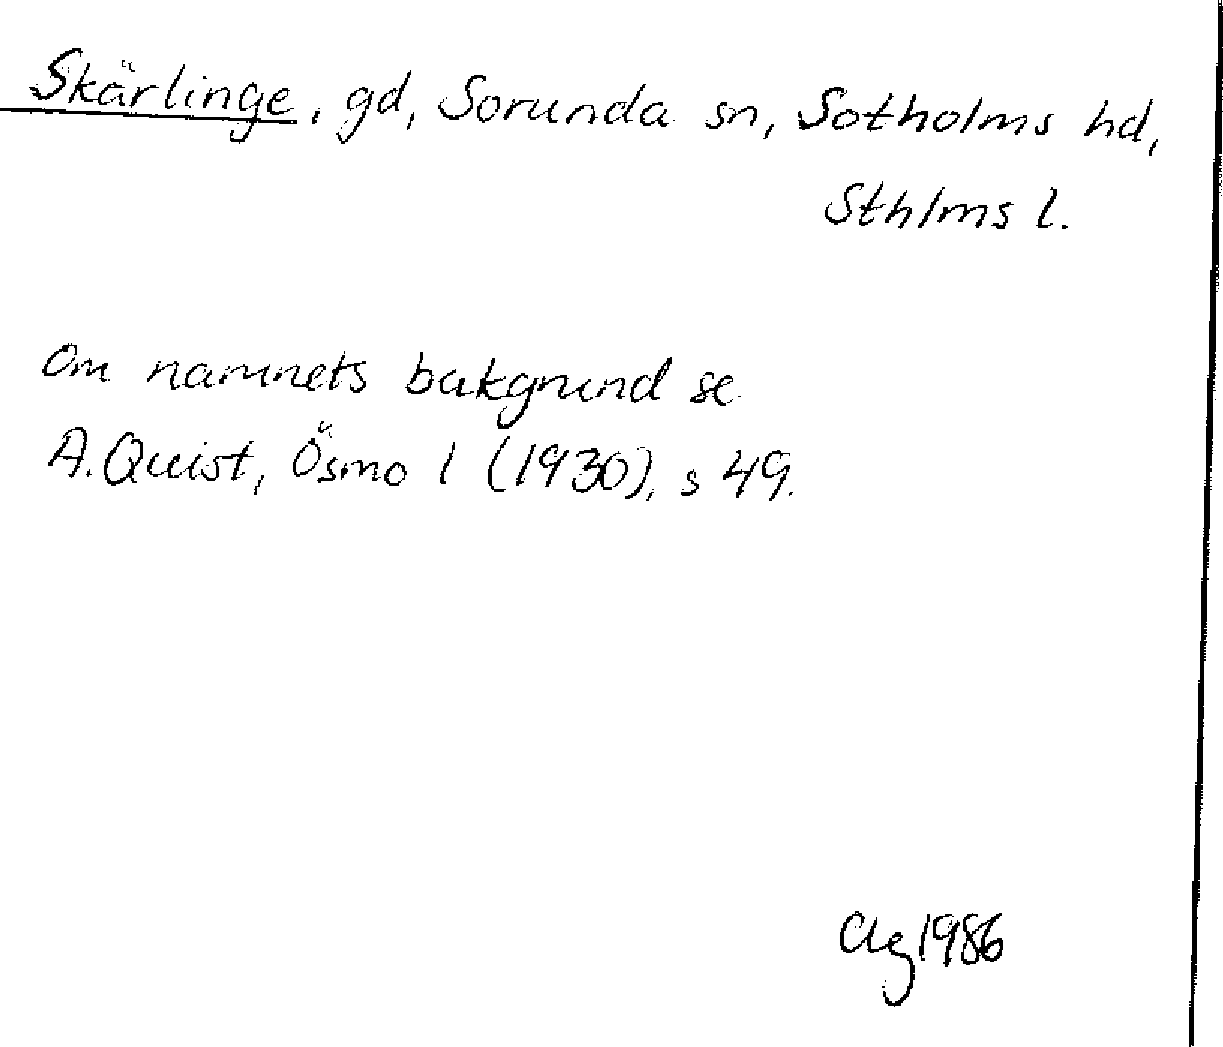 Skärlinge, gd, Sorunda sn, Sotholms hd,
Sthlms l.
Om namnets bakgrund se
A. Quist, Ösmo 1 (1930), s 49.
1986